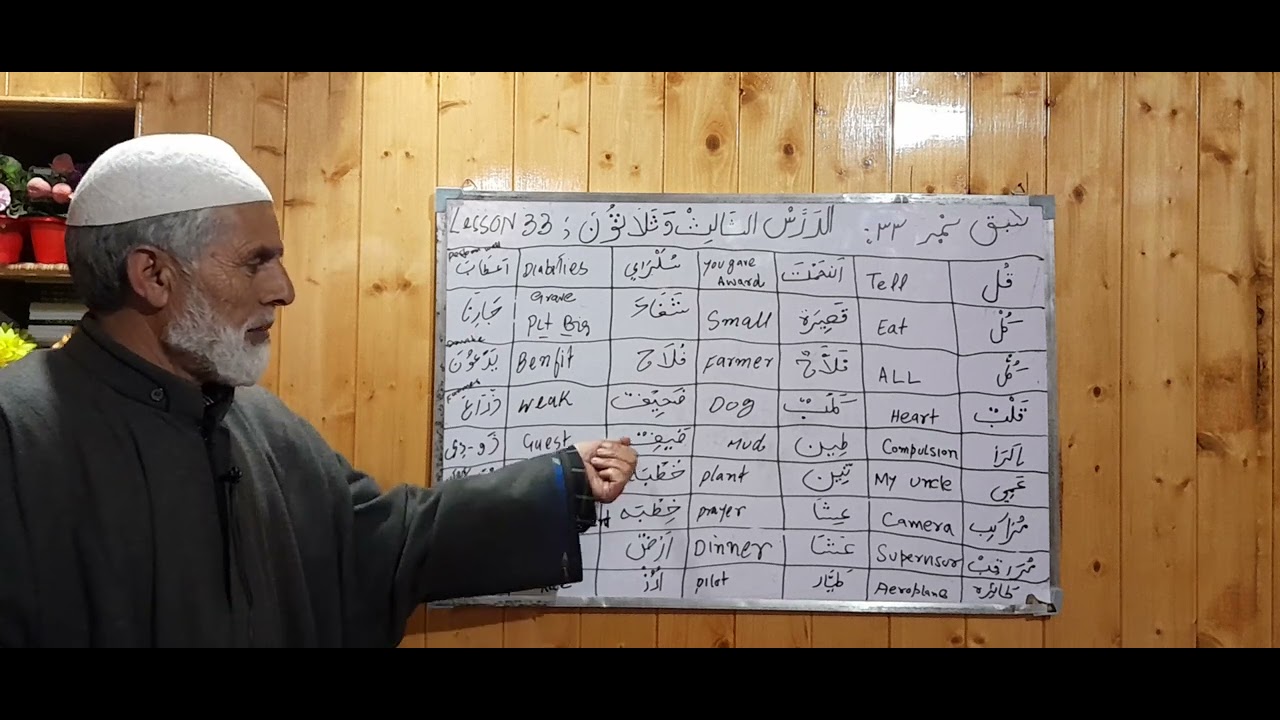 Lesson 33 الدَرَسْ الثَالِثْ وَ ثَلَاثُوْنَ : سبق نمبر ۳۳:
Diabeties سُكْرَاي You gave Award اَنْعَمْتَ Tell قُل
جَارِنَا Grave Pit Big شَفَاءَ Small قَصِيْرَة Eat كُلْ
يَدْعُوْنَ Benfit فُلَاحْ Farmer فَلَّاحْ ALL كُلُّ
زَرَّاعْ Weak Dog كَلَبْ Heart قَلْبْ
Guest ضَيِفْ Mud طِيْن Compulsion اِكرَا
خُطْبَه plant تِيْن My uncle عَمِّي
خِطْبَه prayer عِشَا Camera
اَرْضْ Dinner عَشَا Supervisor مُرَاقِبْ
اَرُزْ pilot طَيَّار Aeroplane طائره